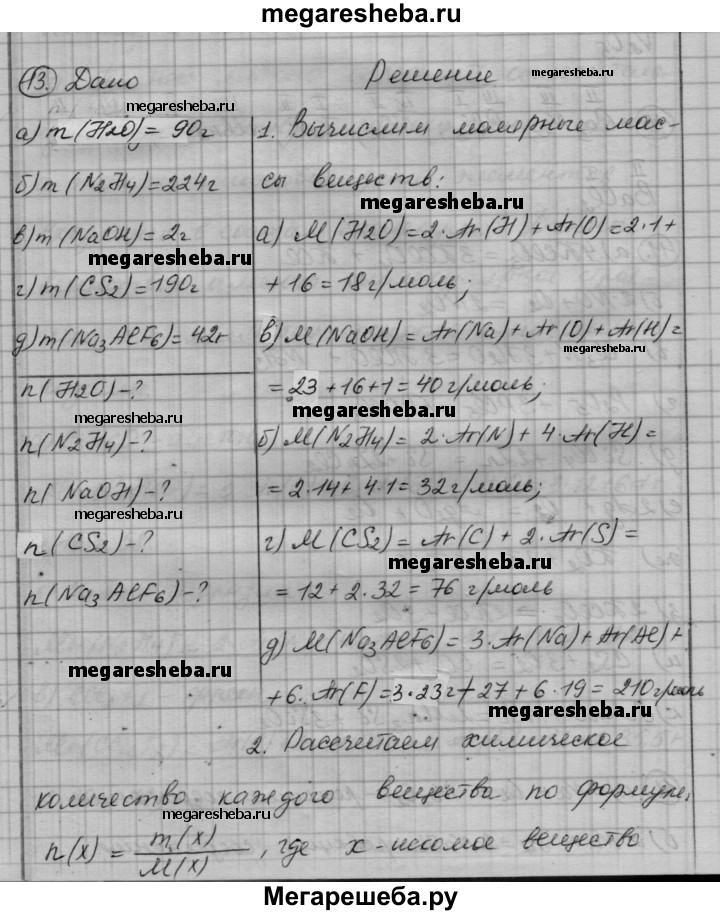 megaresheba.ru
13. Дано
megaresheba.ru
а) m(H2O) = 90г
б) m(N2H4)=224г
в) m(NaOH)=2г
megaresheba.ru
г) m(CS2)=190г
д) m(Na3AlF6)=42г
n(H2O)-?
megaresheba.ru
n(N2H4)-?
n(NaOH)-?
megaresheba.ru
n(CS2)-?
n(Na3AlF6)-?
megaresheba.ru
Решение
megaresheba.ru
1. Вычислим молярные мас-
сы веществ:
megaresheba.ru
а) M(H2O)=2·Ar(H)+Ar(O)=2·1+
+16=18г/моль;
в) M(NaOH)=Ar(Na)+Ar(O)+Ar(H)=
megaresheba.ru
=23+16+1=40г/моль;
megaresheba.ru
б) M(N2H4)=2·Ar(N)+4·Ar(H)=
=2·14+4·1=32г/моль;
г) M(CS2)=Ar(C)+2·Ar(S)=
=12+2·32=76 г/моль
д) M(Na3AlF6)=3·Ar(Na)+Ar(Al)+
+6·Ar(F)=3·23г+27+6·19=210г/моль
megaresheba.ru
2. Рассчитаем химическое
количество каждого вещества по формуле,
megaresheba.ru
n(x) = m(x)/M(x), где х-искомое вещество
Мегарешеба.ру